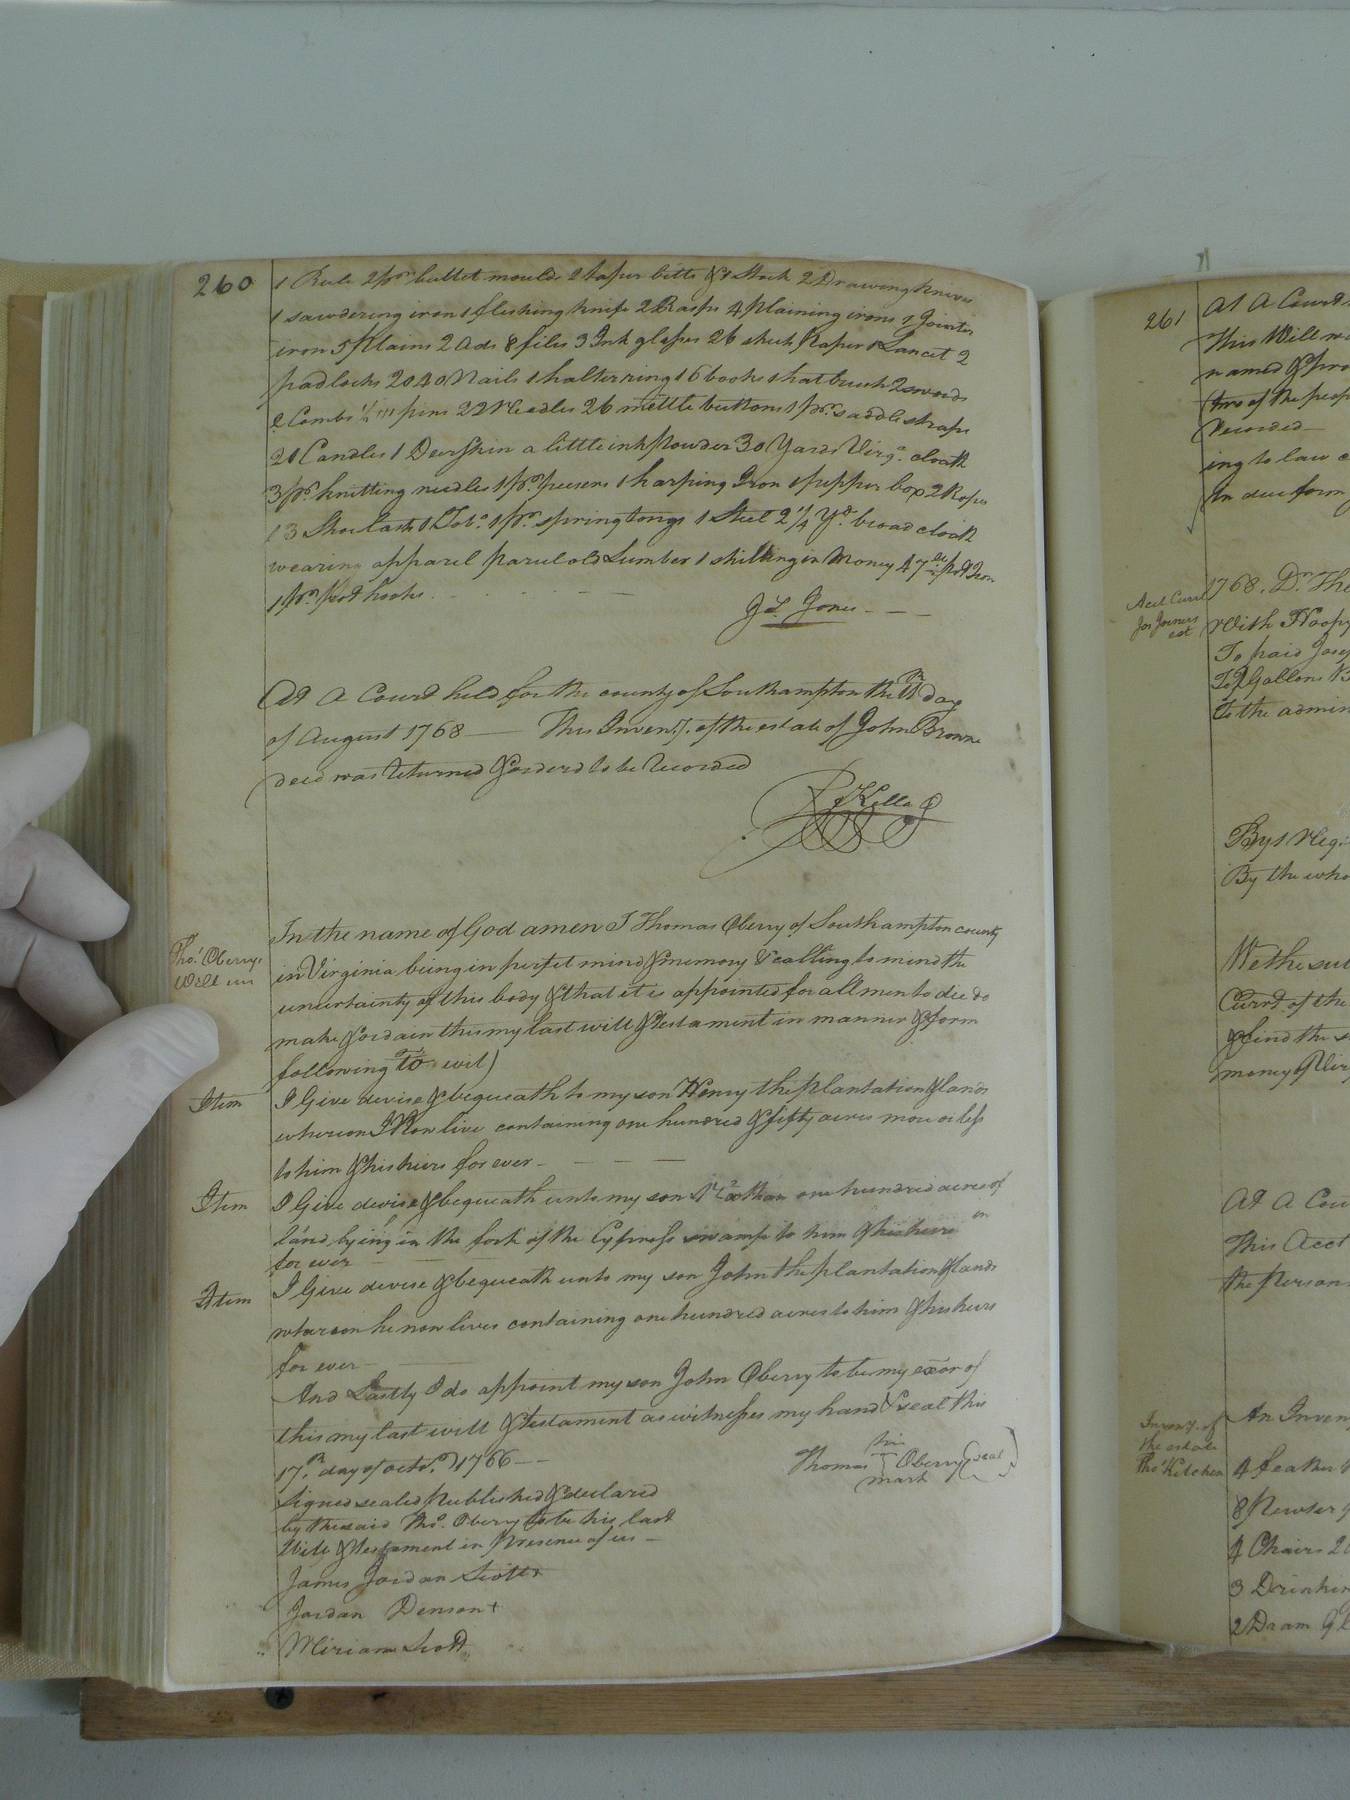 260
1 Rule 2 pr. bullet moulds 2 taper bitts & 1 Stock 2 Drawing knives
1 sawdering iron 1 fleshing knife 2 Rasps 4 plaining irons 1 Jointer
iron 5 Plains 2 Ads 8 files 3 Ink glasses 26 sheets Paper 1 Lancet 2
padlocks 2040 Nails 1 halter ring 16 books 1 hat brush 2 swords
2 Combs ½ m pins 22 Needles 26 mettle buttons 1 pr. saddle straps
21 Candles 1 Deer skin a little ink powder 30 Yards Virga. cloath
3 pr. knitting needles 1 pr. 1 harping Iron 1 pepper box 2 Ropes
13 Shoe lasts 1 1 pr. spring tongs 1 Steel 2¼ Yd. broad cloath
wearing apparel parcel old Lumber 1 shilling in Money 47 lb pot Iron
1 pr. pot hooks
Jones
At A Court held for the county of Southampton the 11th day
of August 1768 — This Inventy. of the estate of John Browne
decd was Returned & orderd to be Recorded
Kello
Tho.s Oberrys
Will
In the name of God amen I Thomas Oberry of Southampton county
in Virginia being in perfet mind & memory & calling to mind the
uncertainty of this body & that it is appointed for all men to die do
make & ordain this my last will & testament in manner & form
following To wit)
Item I Give devise & bequeath to my son Henry the plantation & lands
whereon I Now live containing one hundred & fifty acres more or less
to him & his heirs for ever —
Item I Give devise & bequeath unto my son one hundred acres of
land lying in the fork of the Cypress swamp to him & his heirs
for ever
Item I Give devise & bequeath unto my son John the plantation & lands
whareon he now lives containing one hundred acres to him & his heirs
for ever —
And Lastly I do appoint my son John Oberry to be my exor of
this my last will & testament as witnesses my hand & seal this
17th. day of octor. 1766 —
his
Thomas Oberry (seal)
mark
signed sealed Published & declared
by the said Thos. Oberry to be his last
Will & testament in Presence of us —
James Jordan Scott +
Jordan Denson +
Miriam Scott
261
At A Court
This Will w
named & pro
two of the peop
Recorded —
ing to law
In due form
Acct Curr
Jos Joiners
est
1768. Dr. The
With
To paid Jose
To Gallons B
to the admin
By 1 Neg
By the who
We the su
Currt. of the
& find the s
money
At A Cou
This Acct
the Person
Inventy. of
the estate
Tho.s Kitchen
An Inven
4 feather
8 Pewter
4 Chairs 2
3 Drinkin
2 Dram Gl